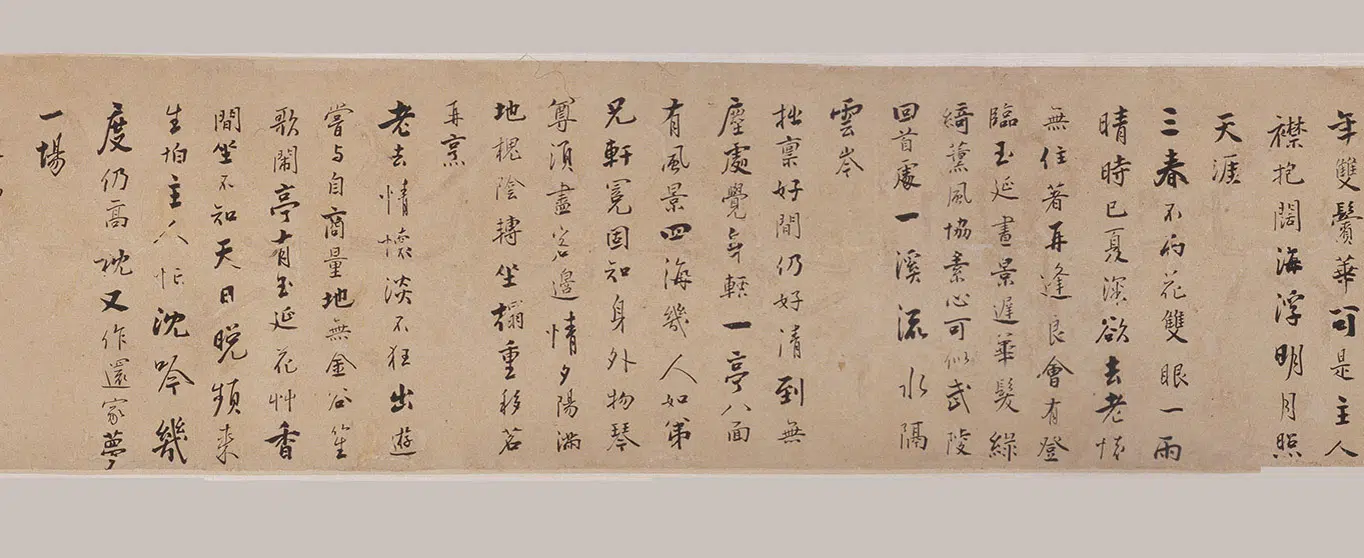 年雙鬢華可是主人
襟抱闊海浮明月照
天涯
三春不向花雙眼一雨
晴時已夏深欲去老懷
無住著再逢良會有登
臨玉延晝景遲華髮綠
綺薰風協素心可似武陵
回首處一溪流水隔
雲岑
拙稟好閒仍好清到無
塵處覺身輕一亭八面
有風景四海幾人如弟
兄軒冕固知身外物琴
尊須盡老邊情夕陽滿
地槐陰轉坐榻重移茗
再烹
老去情懷淡不狂出遊
嘗与自商量地無金谷笙
歌鬧亭有玉延花艸香
閒坐不知天日晚頻来
生怕主人忙沈吟幾
度仍高枕又作還家夢
一場